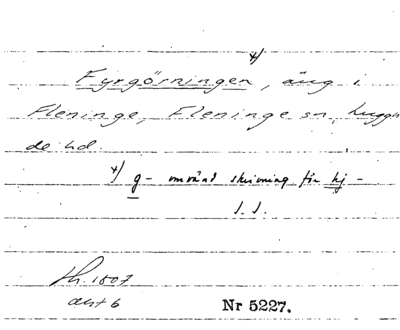 x/
Fyrgörningen, äng i
Fleninge, Fleninge sn, Luggu
de hd.
x/ g- omvänd skrivning för hj-
J. J.
lh. 1807
akt 6
Nr 5227.